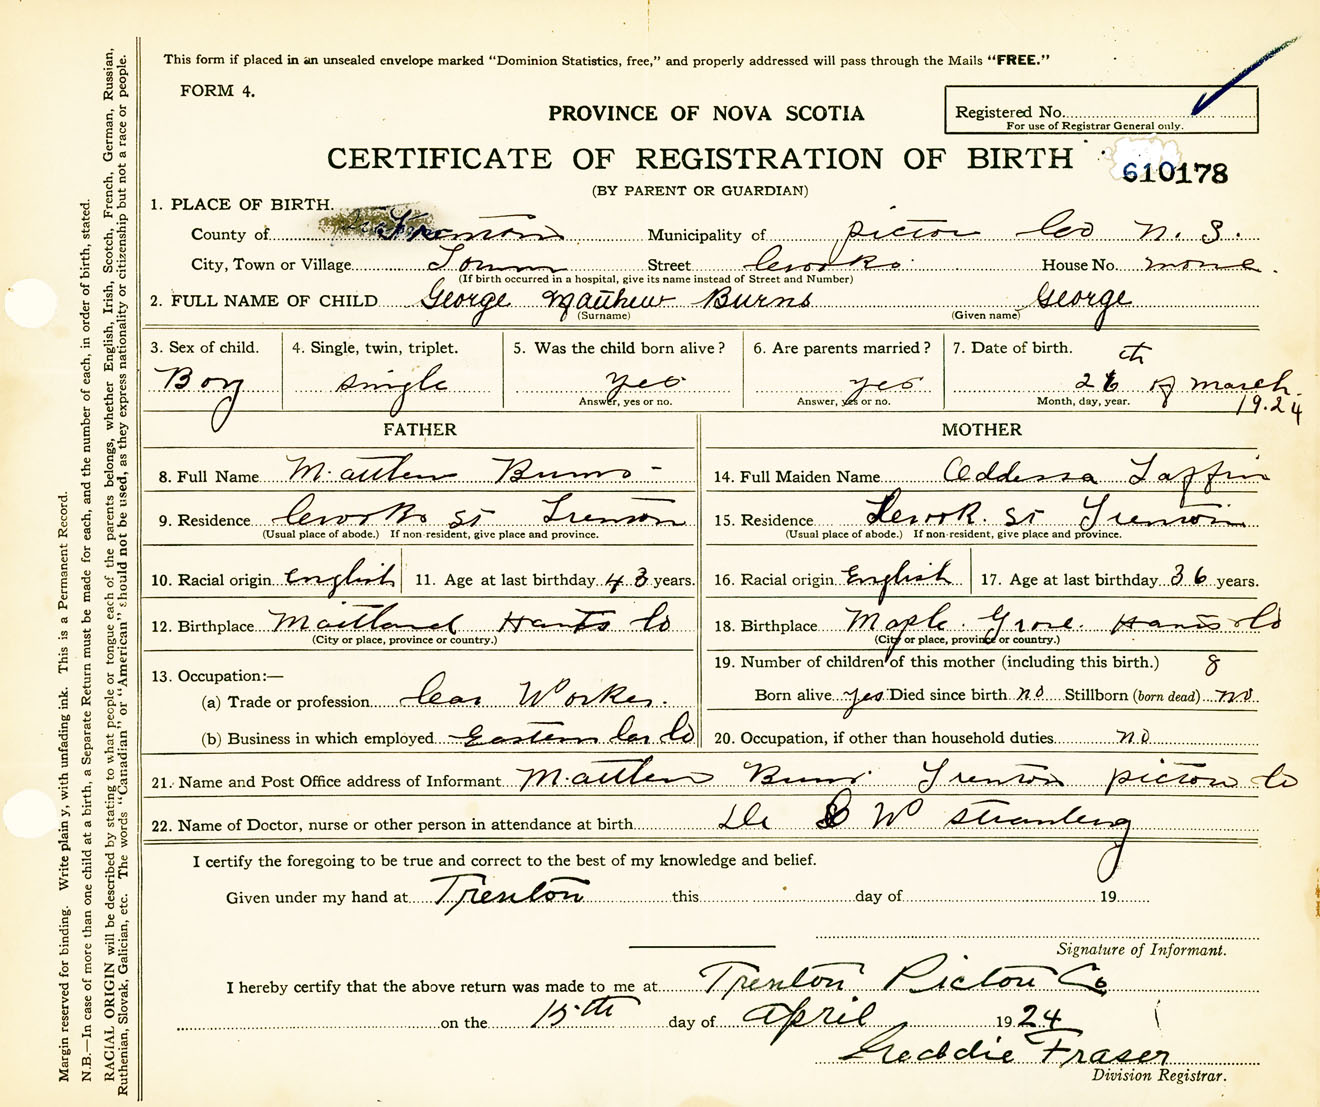 This form if placed in an unsealed envelope marked "Dominion Statistics, free," and properly addressed will pass through the Mails "FREE."
FORM 4.
PROVINCE OF NOVA SCOTIA
Registered No.
For use of Registrar General only.
CERTIFICATE OF REGISTRATION OF BIRTH
610178
(BY PARENT OR GUARDIAN)
1. PLACE OF BIRTH.
County of Trenton Municipality of Picton Co N. S.
City, Town or Village Town Street Crooks House No. none.
(If birth occurred in a hospital, give its name instead of Street and Number)
2. FULL NAME OF CHILD George Matthew Burns George
(Surname) (Given name)
3. Sex of child. 4. Single, twin, triplet. 5. Was the child born alive? 6. Are parents married? 7. Date of birth.
Boy single yes yes 26th of March 1924
Answer, yes or no. Answer, yes or no. Month, day, year.
FATHER MOTHER
8. Full Name Matthew Burns 14. Full Maiden Name Addessa Laffin
9. Residence Crooks St Trenton 15. Residence Crook. St Trenton
(Usual place of abode.) If non-resident, give place and province. (Usual place of abode.) If non-resident, give place and province.
10. Racial origin English 11. Age at last birthday 43 years. 16. Racial origin English 17. Age at last birthday 36 years.
12. Birthplace Maitland Hants Co 18. Birthplace Maple Grove. Hants Co
(City or place, province or country.) (City or place, province or country.)
13. Occupation:— 19. Number of children of this mother (including this birth.) 8
(a) Trade or profession Car Worker. Born alive yes Died since birth no Stillborn (born dead) no.
(b) Business in which employed Eastern Car Co 20. Occupation, if other than household duties no
21. Name and Post Office address of Informant Matthew Burns Trenton Picton Co
22. Name of Doctor, nurse or other person in attendance at birth Dr W
I certify the foregoing to be true and correct to the best of my knowledge and belief.
Given under my hand at Trenton this day of 19
Signature of Informant.
I hereby certify that the above return was made to me at Trenton Pictou Co
on the 15th day of April 1924
Freddie Fraser
Division Registrar.
Margin reserved for binding. Write plain y, with unfading ink. This is a Permanent Record.
N.B.—In case of more than one child at a birth, a Separate Return must be made for each, and the number of each, in order of birth, stated.
RACIAL ORIGIN will be described by stating to what people or tongue each of the parents belongs, whether English, Irish, Scotch, French, German, Russian,
Ruthenian, Slovak, Galician, etc. The words "Canadian" or "American" should not be used, as they express nationality or citizenship but not a race or people.